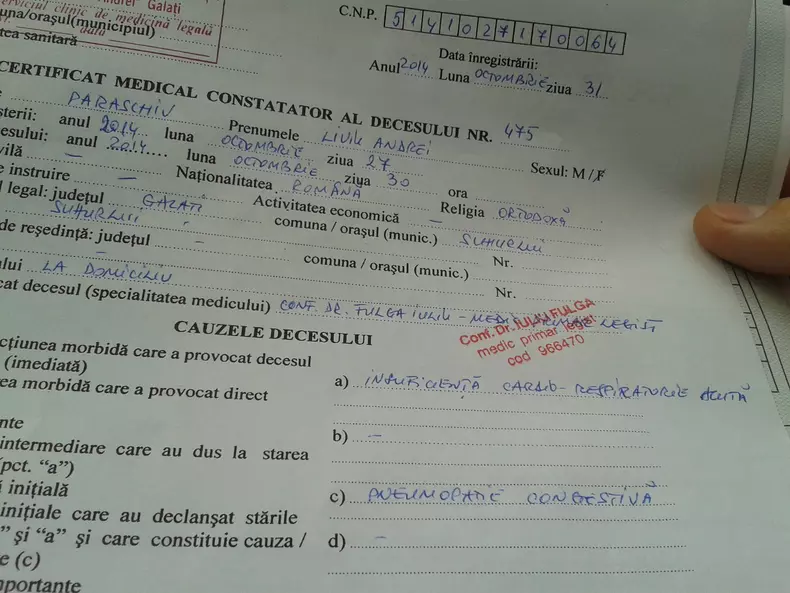 Andrei Galati
serviciul clinic de medicină legală
una/orașul(municipiul)
tea sanitară
C.N.P. 5141027170064
Data înregistrării:
Anul 2014 Luna OCTOMBRIE ziua 31
CERTIFICAT MEDICAL CONSTATATOR AL DECESULUI NR. 475
PARASCHIV Prenumele LIVIU ANDREI
șterii: anul 2014 luna OCTOMBRIE ziua 27 Sexul: M / F
esului: anul 2014 luna OCTOMBRIE ziua 30 ora
vilă – Naționalitatea ROMÂNĂ Religia ORTODOXĂ
e instruire – Activitatea economică –
l legal: județul GALATI comuna / orașul (munic.) SUHURLUI
SUHURLUI Nr.
de reședință: județul – comuna / orașul (munic.)
– Nr.
ului LA DOMICILIU
cat decesul (specialitatea medicului) CONF. DR. FULGA IULIU – MEDIC LEGIST
Conf. Dr. IULIU FULGA
medic primar legist
cod 966470
CAUZELE DECESULUI
cțiunea morbidă care a provocat decesul
(imediată)
ea morbidă care a provocat direct
a) INSUFICIENȚĂ CARDIO-RESPIRATORIE ACUTĂ
nte
intermediare care au dus la starea
(pct. “a”)
b) –
i inițială
inițiale care au declanșat stările
c) PNEUMOPATIE CONGESTIVĂ
” și “a” și care constituie cauza /
e (c)
d) –
mportante